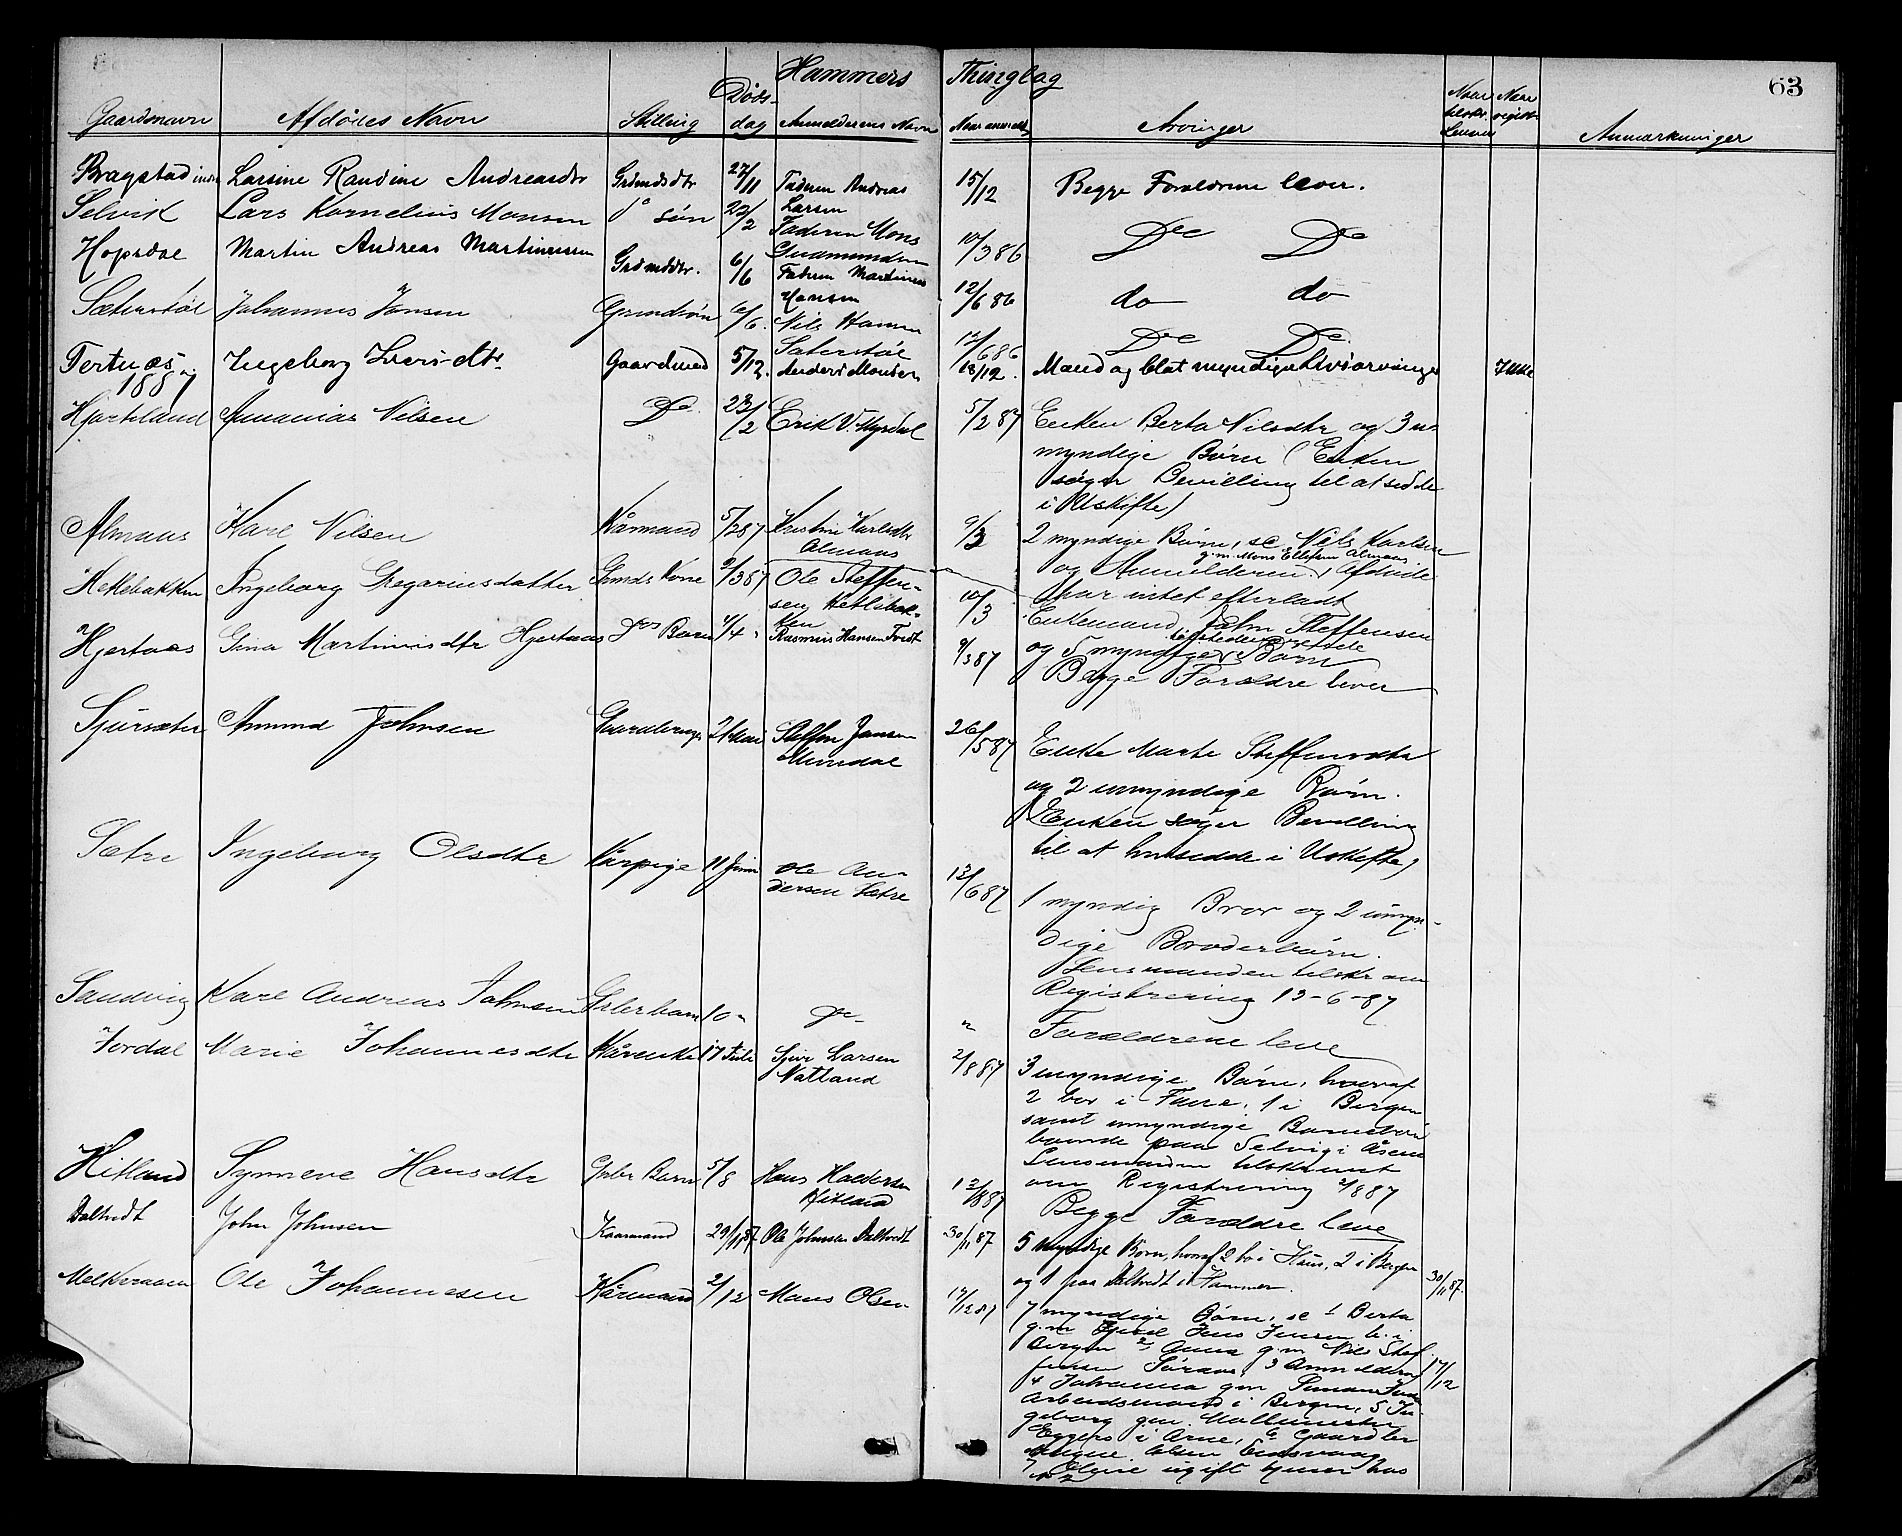 Hammers Thinglag 63
Gaardsnavn Afdödes Navn Stilling Döds-dag Anmelderens Navn Naar anmeldt Arvinger Naar tilskr. Lensm Naar registr Anmærkninger
Bragstad indre Larsine Randine Andreasdtr Grdmdsdtr 27/11 Faderen Andreas Larsen 15/12 Begge Forældrene lever.
Selvik Lars Kornelius Monsen do sön 22/2 Faderen Mons Gudmundsen 10/3 86 Do Do
Hopsdal Martin Andreas Martinussen Grdmdsdtr. 6/6 Faderen Martinus Hansen 12/6 86 do do
Sæterstöl Johannes Jansen Grmdssön 6/6. Nils Hansen Sæterstöl 12/6 86 Do Do
Tertnæs Ingeborg Iversdtr. Gaardmd 5/12. Anders Monsen 18/12. Mand og blot myndige Livsarvinger Ikke
1887
Hjorteland Ananias Nilsen Do 23/2 Erik V. Myrdal 5/2 87 Enken Berta Nilsdtr og 3 u-
myndige Börn (Enken
söger Bevilling til at sidde
i Uskifte)
Almaas Karl Nilsen Kårmand 5/2 87 Kristine Karlsdtr Almaas 9/3 2 myndige Börn, sc Nils Karlsen
og Anmelderen g. m. Mons Ellefsen Almaas. Afdöde
har intet efterladt
Heklebakken Ingeborg Gregoriusdatter Grmds Kone 9/3 87 Ole Steffensen Heklebakken 10/3 Enkemand John Steffensen
og 5 myndige tilstedeværende Börn
Hjortaas Gina Martinusdtr Hjortaas Do Barn 4/4 Rasmus Hansen Tvedt 9/3 87 Begge Forældre lever
Sjursæter Amund Johnsen Gaardbruger 21 Mai Steffen Jansen Mundal 26/5 87 Enke Marte Steffensdtr
og 2 umyndige Börn.
(Enken söger Bevilling
til at hensidde i Uskifte)
Sætre Ingeborg Olsdtr Kårpige 11 Juni Ole Andersen Sætre 13/6 87 1 myndig Bror og 2 umyn-
dige Broderbörn.
Lensmanden tilskr om
Registrering 13-6-87
Sandvig Karl Andreas Johnsen Grbrbarn 10 Do Forældrene leve
Jordal Marie Johannesdtr Kårenke 17 Juli Sjur Larsen Natland 2/8 87 3 myndige Börn, hvoraf
2 bor i Fane, 1 i Bergen
samt umyndige Barnebörn
boende paa Selvig i Åsene
Lensmanden tilskrevet
om Registrering 2/8 87
Hitland Synneve Hansdtr Grbr Barn 5/8 Hans Haldorsen Hitland 12/8 87 Begge Forældre leve
Daltvedt John Johnsen Kaarmand 29/11 87 Ole Johnsen Daltvedt 30/11 87 5 myndige Börn, hvoraf 2 bo i Haus, 2 i Bergen
og 1 paa Daltvedt i Hammer. 30/11 87.
Melkeraaen Ole Johannesen Kårmand 2/12 Mons Olsen 17/12 87 7 myndige Börn, sc 1 Berta
g. m. Jens Jensen b. i
Bergen 2 Anna g. m. Nils Stef-
fensen 3 Anmelderen 17/12
4 Johanna gm
Arbeidsmand i Bergen, 5 In-
geborg gm
Eggers i Arne, 6 Gaardbr
Olsen Eidsvaag
7 ugift tjener hos
No 2